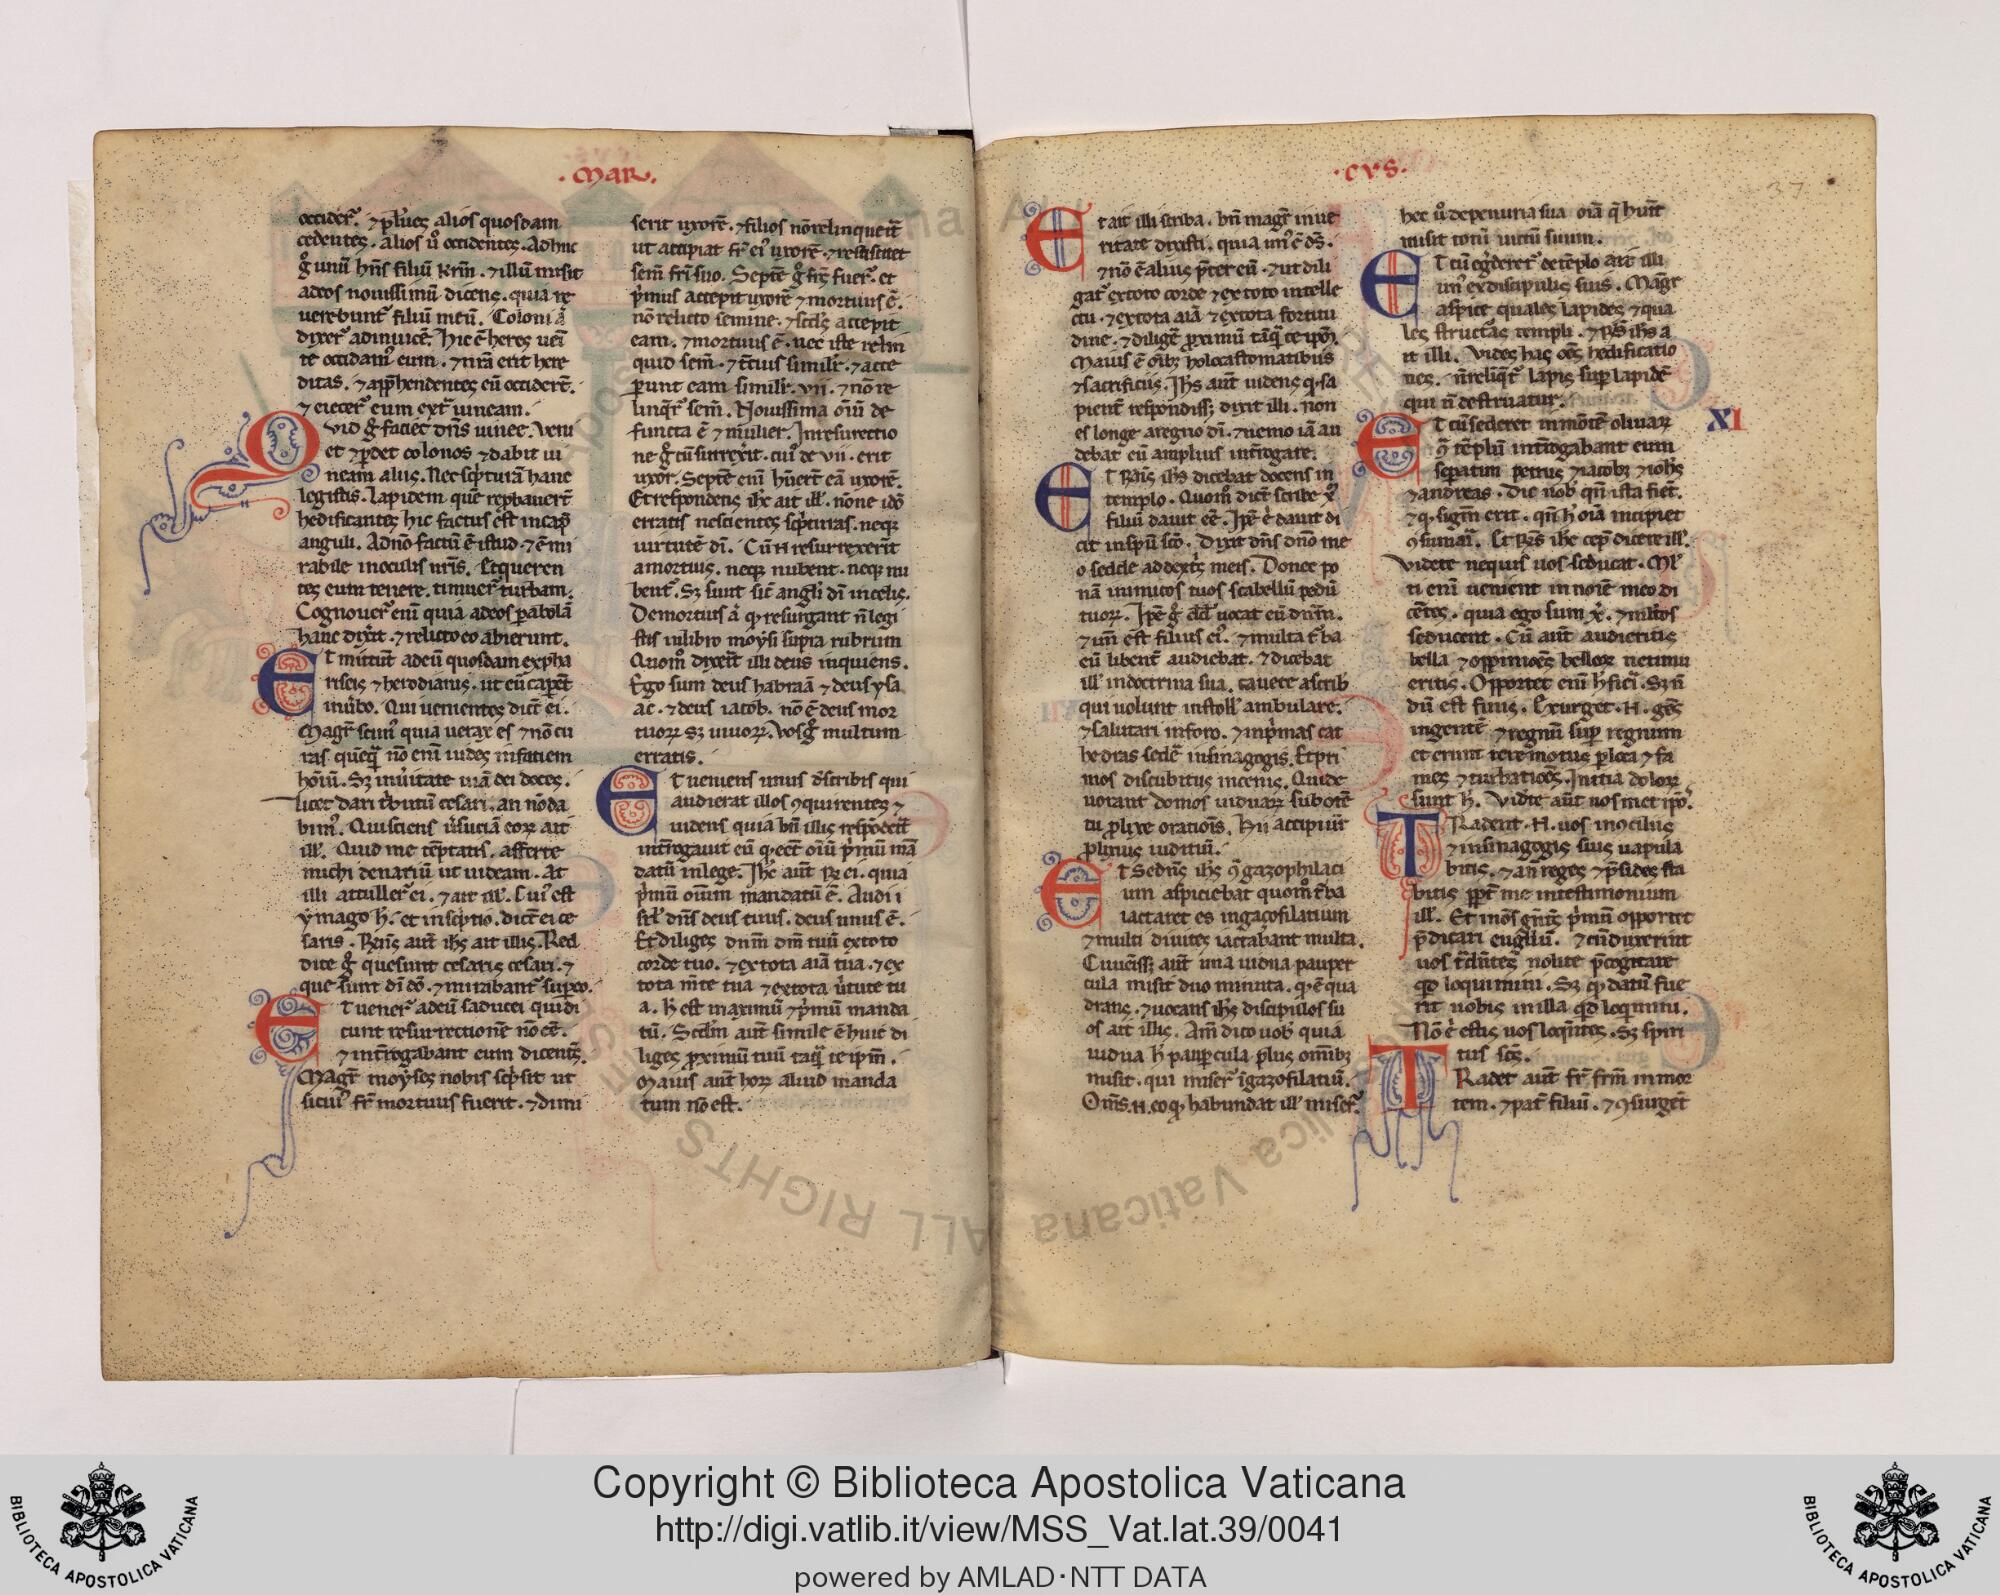 · Mar ·
occider̃. ⁊ pl̃ueç alios quosdam
cedenteç. alios ũ occidenteç. Adhuc
g̊ unũ hñs filiũ krm̃. ⁊ illũ misit
ad eos nouissimũ dicens. quia re
uerebunt̃ filiũ meũ. Coloni
dixer̃ ad inuicẽ. Hic ẽ heres ueni
te occidam᷒ eum. ⁊ nr̃a erit here
ditas. ⁊ app̃hendenteç eũ occiderũt.
⁊ eiecer̃ eum extᷓ uineam.
Quid g̊ faciet dñs uinee. Veni
et ⁊ p̱det colonos ⁊ dabit ui
neam aliis. Nec sc̃pturã hanc
legistis. Lapidem quẽ rep̱bauerũt
hedificanteç hic factus est in cap̃
anguli. A dño factũ ẽ istud. ⁊ ẽ mi
rabile in oculis nr̃is. Et queren
teç eum tenere. timuer̃ turbam.
Cognouer̃ enĩ quia ad eos parabolã
hanc dixit. ⁊ relicto eo abierunt.
Et mittunt ad eũ quosdam ex pha
riseis ⁊ herodianis. ut eũ cap̱ent
in ũbo. Qui uenienteç dicũt ei.
Magr̃ scim᷒ quia uerax es ⁊ nõ cu
ras quẽqᷓ nõ enĩ uides in faciem
hoĩũ. Sz in ũitate uiã dei doces.
licet dari t̃butũ cesari. an nõ da
bim᷒. Qui sciens ũsuciã eoꝝ ait
ill̃. Quid me tẽptatis. afferte
michi denariũ ut uideam. At
illi attuller̃ ei. ⁊ ait ill̃. Cui᷒ est
ymago h̃. et inscp̃tio. dicũt ei ce
saris. Rñs aũt ihs ait illis. Red
dite g̊ que sunt cesaris cesari. ⁊
que sunt dĩ dõ. ⁊ mirabant̃ sup̱ eo.
Et uener̃ ad eũ saducei qui di
cunt resurrectionẽ nõ eẽ.
⁊ int̃rogabant eum dicenteç.
Magr̃ moyses nobis sc̃psit ut
si cui᷒ fr̃ mortuus fuerit. ⁊ dimi
serit uxorẽ. ⁊ filios nõ relinquerit
ut accipiat fr̃ ei᷒ uxorẽ. ⁊ resuscitet
sem̃ fr̃i suo. Septẽ g̊ fr̃s fuer̃. et
p̃mus accepit uxorẽ ⁊ mortuus ẽ.
nõ relicto semine. ⁊ scd̃s accepit
eam. ⁊ mortuus ẽ. nec iste reliq̃
quid sem̃. ⁊ t̃cius similit̃. ⁊ acce
p̱unt eam similit̃. vii. ⁊ nõ re
linq̃r̃ sem̃. Nouissima oĩũ de
functa ẽ ⁊ mulier. In resurectio
ne g̊ cũ surrexerint. cui᷒ de vii. erit
uxor. Septẽ enĩ hũert̃ eã uxorẽ.
Et respondens ihc ait ill̃. nõne idõ
erratis nescienteç sc̃pturas. neq;
uirtutẽ dĩ. Cũ .n. resurrexerint
a mortuis. neq; nubent. neq; nu
bent̃. Sz sunt sic̃ angl̃i dĩ in celis.
De mortuis ã q̱ resurgant ñ legi
stis in libro moysi supra rubrum
Quom̊ dixerit illi deus inquiens.
Ego sum deus habraã ⁊ deus ysa
ac. ⁊ deus iacob. nõ ẽ deus mor
tuoꝝ sz uiuoꝝ. Vos g̊ multum
erratis.
Et ueniens unus d̃ scribis qui
audierat illos ꝯquirenteç ⁊
uidens quia bñ illis respõderit
int̃rogauit eũ q̱ eẽt oĩũ p̃mũ mã
datũ in lege. Ihc aũt R̃ ei. quia
p̃mũ oĩum mandatũ ẽ. Audi i
srl̃ dñs deus tuus. deus unus ẽ.
Et diligeç dnm̃ dm̃ tuũ ex toto
corde tuo. ⁊ ex tota aiã tua. ⁊ ex
tota m̃te tua ⁊ ex tota ũtute tu
a. h̃ est maximũ ⁊ p̃mũ manda
tũ. Scd̃m aũt simile ẽ huic di
ligeç p̱ximũ tuũ taqᷓ te ipm̃.
Maius aũt hoꝝ aliud manda
tum nõ est.
· cvs ·
37
Et ait illi scriba. bñ magr̃ in ue
ritate dixisti. quia un᷒ ẽ ds̃.
⁊ nõ ẽ alius p̃ter eũ. ⁊ ut dili
gat̃ ex toto corde ⁊ ex toto intelle
ctu. ⁊ ex tota aiã ⁊ ex tota fortitu
dine. ⁊ diligẽ p̱ximũ tãqᷓ te ipm̃.
Maius ẽ oĩbz holocastomatibus
⁊ sacrificiis. Ihs aũt uidens q̱ sa
pient̃ respondissz dixit illi. non
es longe a regno dĩ. ⁊ nemo iã au
debat eũ amplius int̃rogare.
Et Rñs ihs dicebat docens in
templo. Quom̊ dicũt scribe xp̃
filiũ dauit eẽ. Ip̃e ẽ dauit di
cit in spũ scõ. Dixit dñs dño me
o sede ad dext̃s meis. Donec po
nã inimicos tuos scabellũ pedũ
tuoꝝ. Ip̃e g̊ dd̃ uocat eũ dnm̃.
⁊ uñ est filius ei᷒. ⁊ multa t̃ba
eũ libent̃ audiebat. ⁊ dicebat
ill̃ in doctrina sua. cauete a scrib
qui uolunt in stoll̃ ambulare.
⁊ salutari in foro. ⁊ in p̃mas cat
hedras sedẽ in sinagogis. Et pri
mos discubitus in cenis. Qui de
uorant domos uiduaꝝ sub obtẽ
tu p̱lixe oratiois̃. Hii accipiũt
p̱lixius iuditiũ.
Et sedñs ihs ꝯ̃ gazophilaci
um aspiciebat quom̊ t̃ba
iactaret es in gaçofilatium
⁊ multi diuites iactabant multa.
Cũ uẽissz aũt una uidua pauper
cula misit duo minuta. q̱ ẽ qua
drans. ⁊ uocans ihs discipulos su
os ait illis. Am̃ dico uob̃ quia
uidua h̃ paup̱cula plus om̃ibz
misit. qui miser̃ ĩ gazofilatiũ.
Om̃s .n. eo q̱ habundat ill̃ miser̃.
hec ũ de penuria sua oiã q̃ huit
misit totũ uictũ suum.
Et cũ eg̃deret̃ de tẽplo ait illi
un᷒ ex discipulis suis. Magr̃
aspice quales lapideç ⁊ qua
les structuras templi. ⁊ Rñs ihs a
it illi. Videç haç oẽs hedificatio
neç. ñ relinq̃t̃ lapis sup̱ lapidẽ
qui ñ destruatur.
XI
Et cũ sederet in mõte oliuaꝝ
ꝯ̃ tẽplũ int̃rogabant eum
sep̱atim petrus ⁊ iacobz ⁊ iohs
⁊ andreas. Dic nob̃ qñ ista fient.
⁊ q̱ signũ erit. qñ h̃ oiã incipiet
ꝯsumari. Et Rñs ihc cep̃ dicere ill̃.
Videte nequis uos seducat. Ml̃
ti enĩ uenient in noĩe meo di
cẽtes. quia ego sum xp̃. ⁊ multos
seducent. Cũ aũt audieritis
bella ⁊ oppinioẽs belloꝝ ne timu
eritis. Opportet enĩ h̃ fieri. Sz ñ
dũ est finis. Exurget .n. gẽs
in gentẽ ⁊ regnũ sup̱ regnum
et erunt tere motus p̱ loca ⁊ fa
mes ⁊ turbatioẽs. Initia doloꝝ
sunt h̃. Videte aũt uos met ipõs.
Tradent .n. uos in ꝯciliis
⁊ in sinagogis suis uapula
bitis. ⁊ añ reges ⁊ p̃sides sta
bitis pp̃t me in testimonium
ill̃. Et in õs gentes p̃mũ opportet
p̃dicari eugliũ. ⁊ cũ duxerint
uos t̃denteç nolite p̃cogitare
qd loquimini. Sz q̱ datũ fue
rit uobis in illa qd loquimini.
Nõ ẽ estis uos loquenteç. Sz spiri
tus scs̃.
Tradet aũt fr̃ frm̃ in mor
tem. ⁊ pat̃ filiũ. ⁊ ꝯsurgent
Copyright © Biblioteca Apostolica Vaticana
http://digi.vatlib.it/view/MSS_Vat.lat.39/0041
powered by AMLAD·NTT DATA
BIBLIOTECA APOSTOLICA VATICANA
BIBLIOTECA APOSTOLICA VATICANA